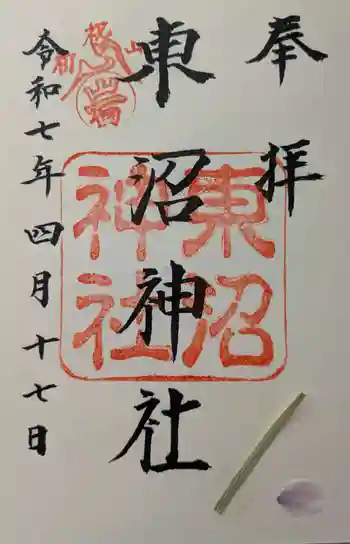 奉拝
東沼神社
東沼
神社
令和七年四月十七日